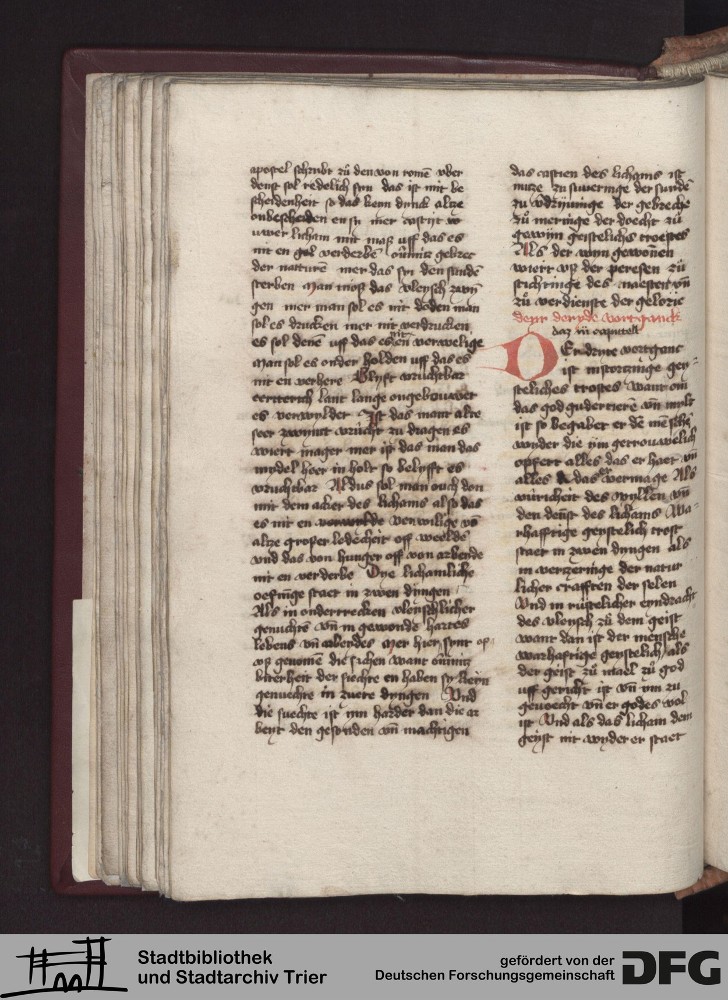 apostel schribt zů den von romē vber
denst sol redelich syn das ist mit be
scheidenheit so das kenn druck alze
onbescheiden en sy mer castyt
uwer licham mit mass uff das es
nit en gol verderbē gebrec
der naturē mer das syn den sunde
sterben Man moss das vleysch zwyn
gen mer man sol es nit doden man
sol es drucken mer nit verdrucken
es sol denē uff das es nit en verwelige
Man sol es onder holden uff das es
nit en verhere Blyft vruchtbar
eertterich lant lange ongebouwet
es verwylder Ist das mont alze
seer zwynt vrucht zu dragen es
wiert mager mer ist das man das
mydel hoer in holt so belyfft es
vruchtbar Aldus sol man ouch don
mit dem acker des lichams also das
es nit en verwilige vs
alze groser lodecheit off weelde
vnd das von hunger off von arbende
nit en verderbe Dye lichamliche
oefinge staet in zwen dyngen
Als in ondertrecken vleyschlicher
genuchtē vn̄ in gewonde hartes
lebens vn̄ arbendes Mer hier synt
vs genomē die sichen want
bitterheit der suechte en haben sy kein
genuechte in zuere dyngen Vnd
die suechte ist inn harder dan die ar
beyt den gesonden vn̄ machtigen
das castien des lichams ist
nutze zu suweringe der sunde
zu vdryuinge der gebreche
zů meringe der doecht zů
gewyn geisteliches troestes
Als der wyn gewonnen
wiert vs der persen zů
stichtinge des naesten vn̄
zů verdienste der glorie
deyt derde vortganck
daz iii capittell
DEr drytte vortganc
ist instortunge gey
steliches trostes Want om
das god gudertierē vn̄ mylt
ist so begabet er dē mēsche
wyder die im getrouwelich
opfert alles das er haet vn̄
alles das er vermage Als
vuricheit des wyllen vn̄
den denst des lichams Wa
rhafftige geystelich trost
staet in zwen dyngen als
in verzeringe der natur
licher crafften der selen
Vnd in rüstelicher eyndracht
des vleysch zů dem geist
want dan ist der mensche
warhaftige geystelich als
der geist zů mael zů god
uff gericht ist vn̄ ym zu
gevoecht vn̄ er godes vol
ist Vnd als das licham dem
geyst nit wyder er staet
Stadtbibliothek
und Stadtarchiv Trier
gefördert von der
Deutschen Forschungsgemeinschaft
DFG